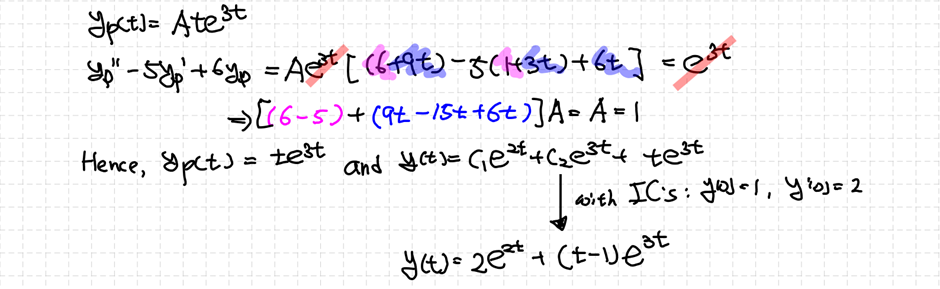 yp(t) = Ate^3t
yp'' - 5yp' + 6yp = Ae^3t [(6+9t) - 5(1+3t) + 6t] = e^3t
⇒ [(6-5) + (9t - 15t + 6t)]A = A = 1
Hence, yp(t) = te^3t and y(t) = C₁e^2t + C₂e^3t + te^3t
with IC's: y(0)=1, y'(0)=2
y(t) = 2e^2t + (t-1)e^3t